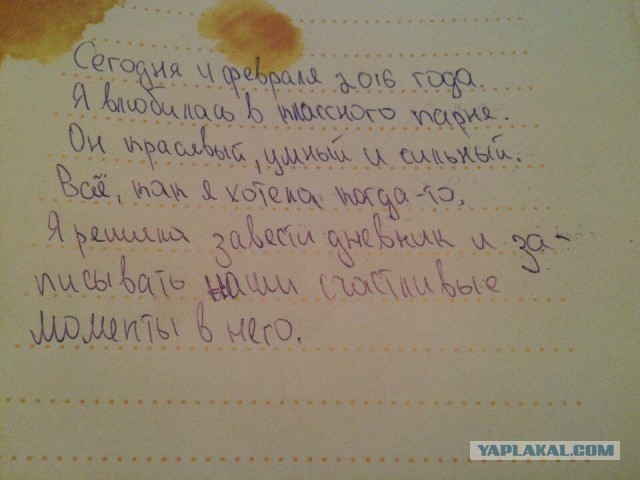 Сегодня 4 февраля 2016 года.
Я влюбилась в классного парня.
Он красивый, умный и сильный.
Всё, как я хотела когда-то.
Я решила завести дневник и за-
писывать наши счастливые
моменты в него.
YAPLAKAL.COM